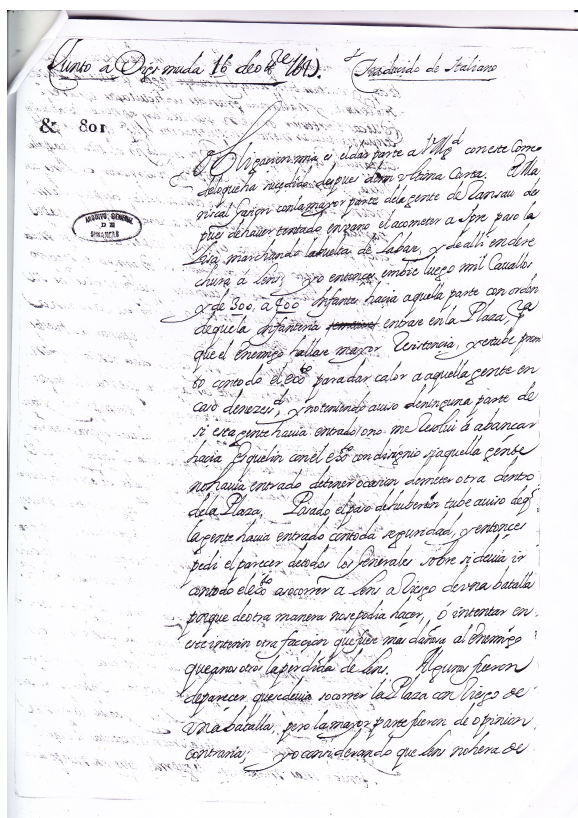 Junto á Dixmuda 16 de ott.re 1647. Traducido de Italiano
& 801
ARCHIVO GENERAL
DE
SIMANCAS
Obligacion mia es, el dar parte a V. Mg.d con este Correo
de lo que ha sucedido despues de mi ultima Carta. El Ma
riscal Gasion con la mayor parte de la gente de Ransau des
pues de haver tentado en vano el acometer a Ipre paso la
Lisa, marchando la buelta de la bas, y de alli en dere
chura á Lens, yo entonces embie luego mil Cavallos
y de 300, a 400 Infantes hacia aquella parte con orden
de que la Infanteria entrase en la Plaza, p.a
que el enemigo hallase mayor Resistencia, y estube prom
to con todo el ex.to para dar calor a aquella gente en
caso de neze.d, y no teniendo aviso de ninguna parte de
si esta gente havia entrado, o no me Resolvi á abanzar
hacia con el ex.to con disignio si aquella gente
no havia entrado de tener ocasion de meter otra dentro
de la Plaza, Pasado el paso de huberdin tube aviso de q.
la gente havia entrado con toda seguridad, y entonces
pedi el parecer de todos los Generales sobre si devia ir
con todo el ex.to a socorrer a Lens a Riesgo de una batalla
porque de otra manera no se podia hacer, ó intentar en
este interin otra faccion que fuese mas dañosa al Enemigo
que a nosotros la perdida de Lens. Algunos fueron
de parecer que se devia socorrer la Plaza con Riesgo de
una batalla, pero la mayor parte fueron de opinion
contraria; yo considerando que Lens no hera de